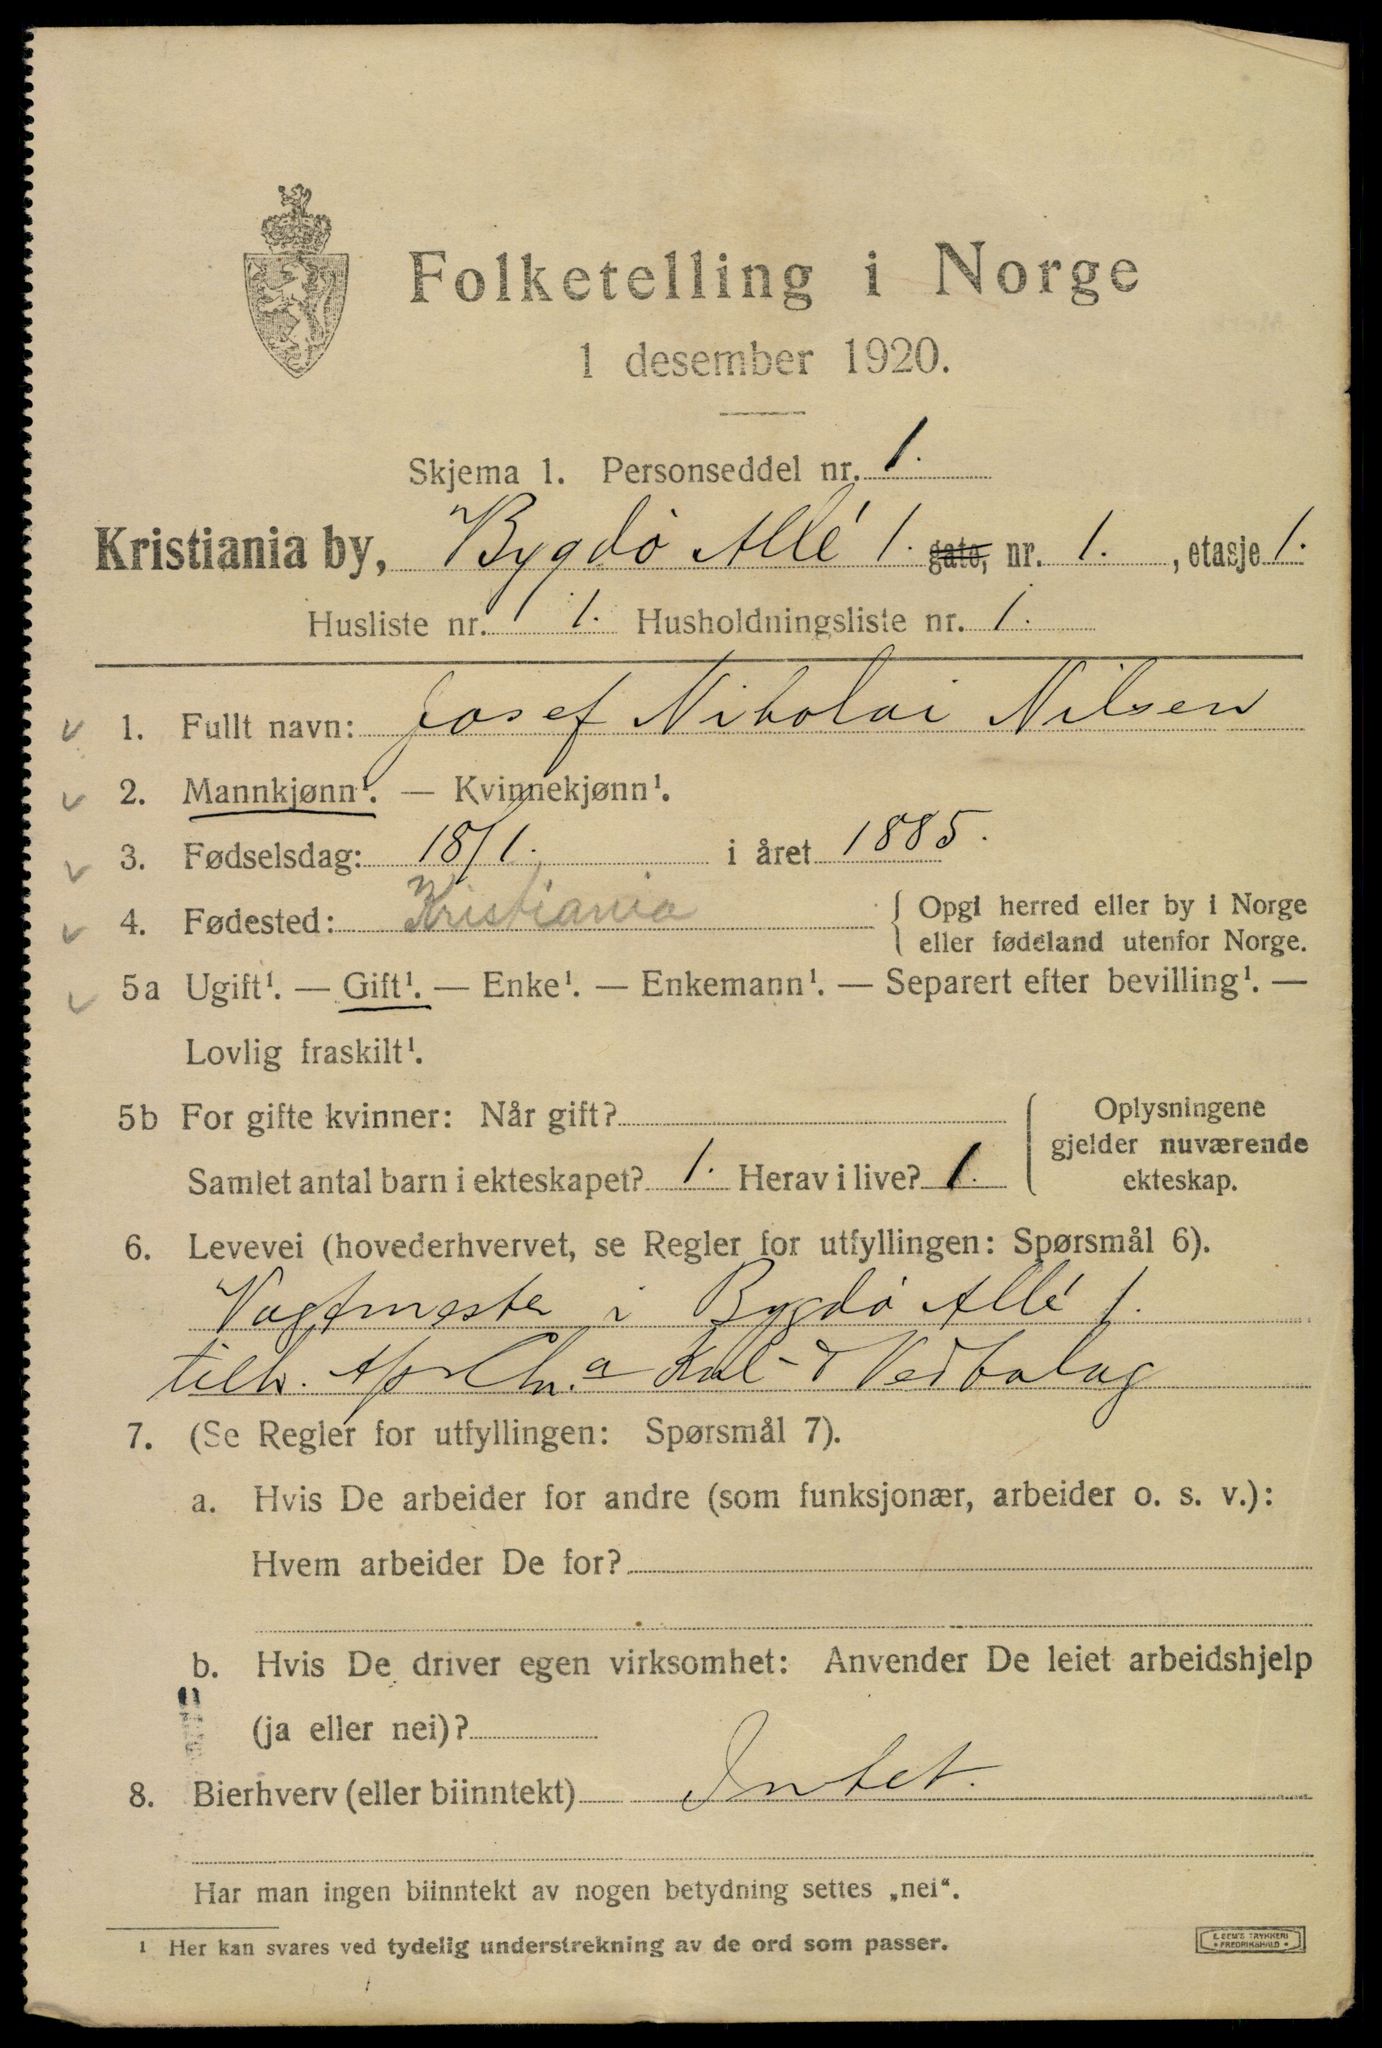 Folketelling i Norge
1 desember 1920.
Skjema 1. Personseddel nr. 1.
Kristiania by, Bygdö Allé 1. gate, nr. 1. , etasje 1.
Husliste nr. 1. Husholdningsliste nr. 1.
1. Fullt navn: Josef Nikolai Nilsen
2. Mannkjønn¹. — Kvinnekjønn¹.
3. Fødselsdag: 18/1. i året 1885.
4. Fødested: Kristiania { Opgi herred eller by i Norge
eller fødeland utenfor Norge.
5a Ugift¹. — Gift¹. — Enke¹. — Enkemann¹. — Separert efter bevilling¹. —
Lovlig fraskilt¹.
5b For gifte kvinner: Når gift? Oplysningene
gjelder nuværende
Samlet antal barn i ekteskapet? 1. Herav i live? 1. ekteskap.
6. Levevei (hovederhvervet, se Regler for utfyllingen: Spørsmål 6).
Vagtmester i Bygdö Allé 1.
tilh. Chr.a Kul- & Vedbolag
7. (Se Regler for utfyllingen: Spørsmål 7).
a. Hvis De arbeider for andre (som funksjonær, arbeider o. s. v.):
Hvem arbeider De for?
b. Hvis De driver egen virksomhet: Anvender De leiet arbeidshjelp
(ja eller nei)?
8. Bierhverv (eller biinntekt) Intet.
Har man ingen biinntekt av nogen betydning settes „nei“.
¹ Her kan svares ved tydelig understrekning av de ord som passer.
E. SEM'S TRYKKERI
FREDRIKSHALD